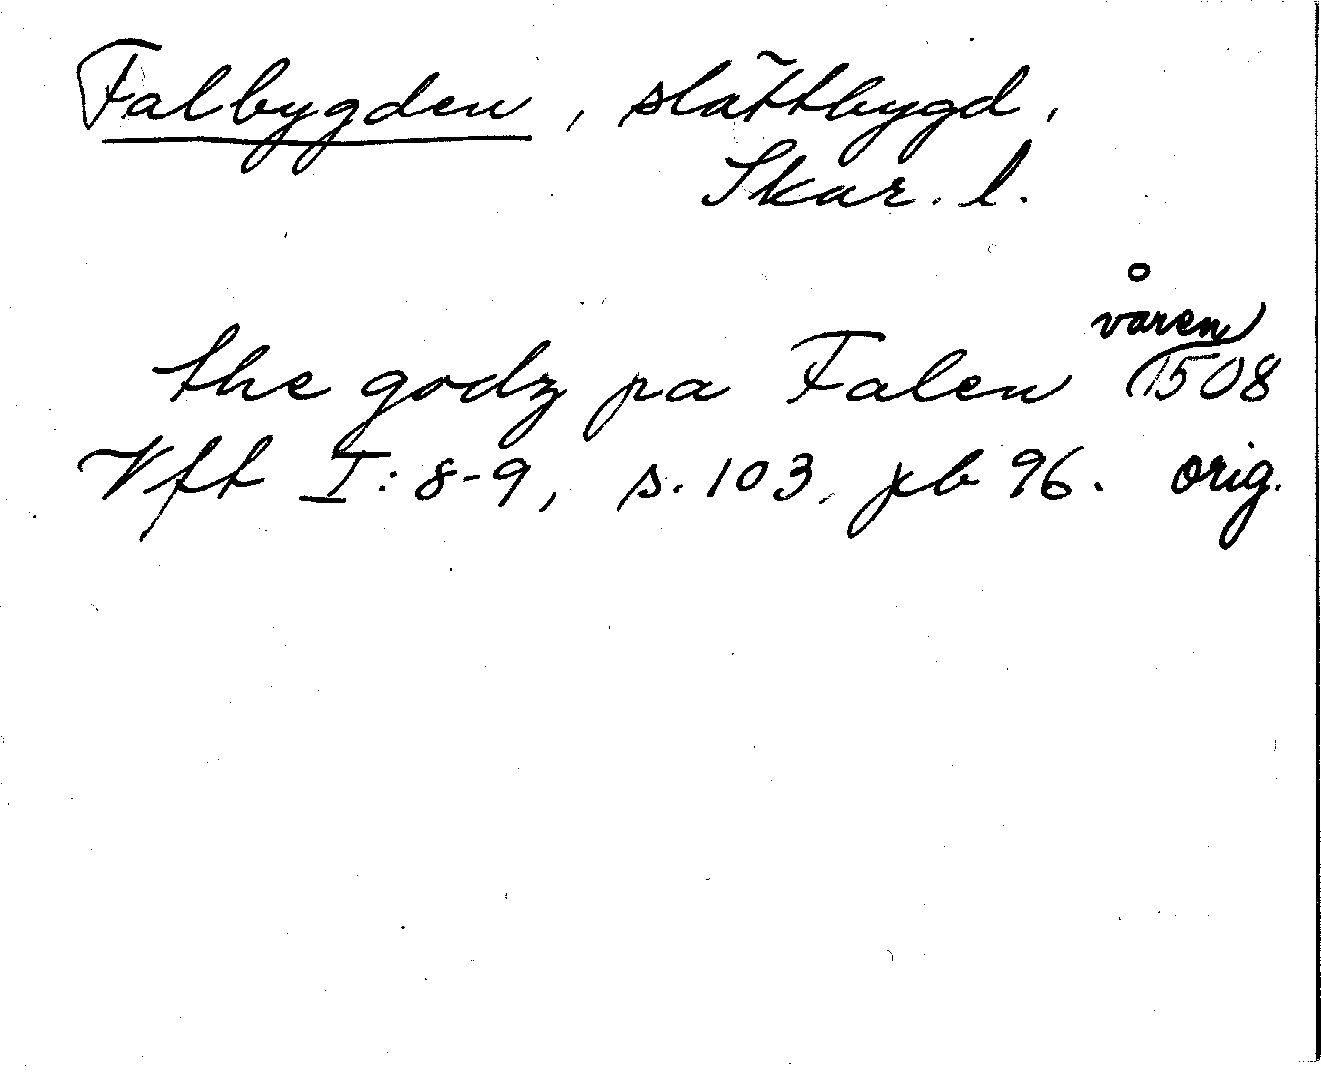 Falbygden, slättbygd,
Skar. l.
våren
the godz pa Falen 1508
Vft I: 8-9, s. 103, pb 96. orig.